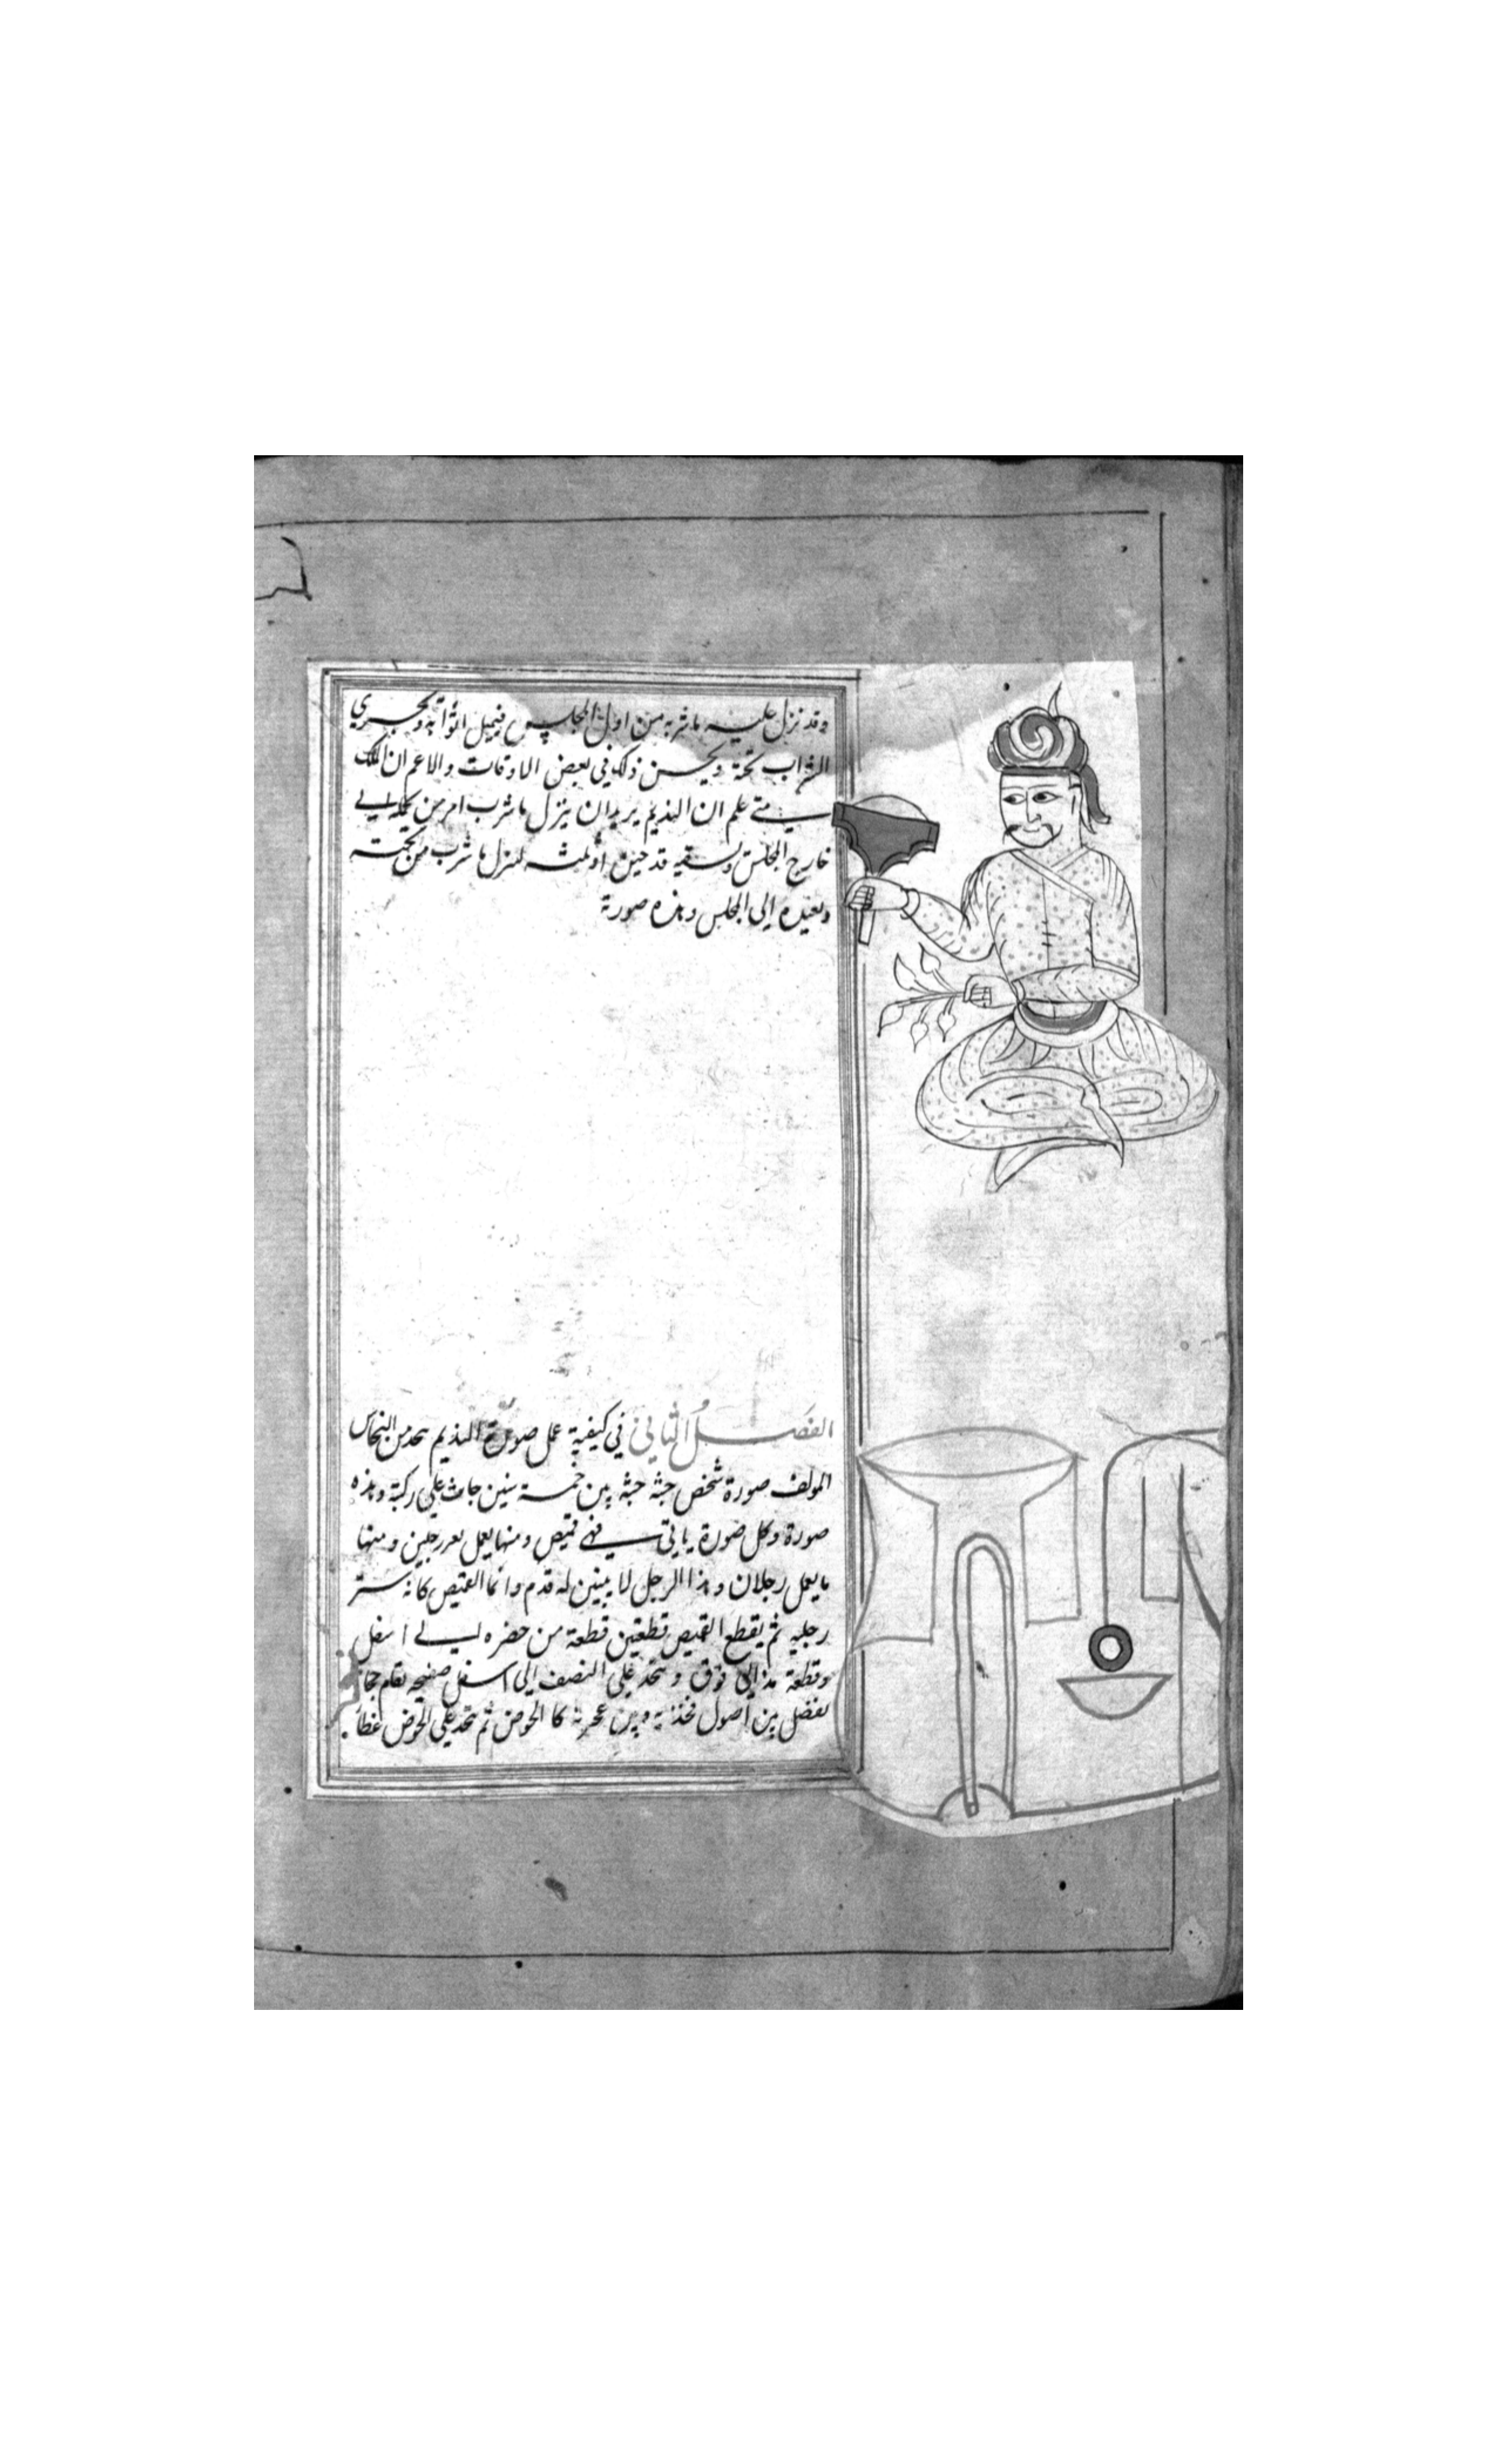 وقد نزل عليه ما شربه من اول المجلس فيميل اثوابه ويجري
الشراب تحته ويحسن ذلك في بعض الاوقات والاعم ان الملك
متي علم ان النديم يريد ان ينزل ما شرب امر من يحمله الي
خارج المجلس ويسقيه قدحين او ثلثه لينزل ما شرب من تحته
ويعيده الي المجلس وهذه صورته
الفصل الثاني في كيفية عمل صورة النديم يتخذ من النحاس
المولف صورة شخص جثته جثة بين خمسة سنين جاث علي ركبته وهذه
صورة وكل صورة ياتي فهي قميص ومنها يعمل بغير رجلين ومنها
ما يعمل رجلان وهذا الرجل لا يبين له قدم وانما القميص كانه ستر
رجليه ثم يقطع القميص قطعتين قطعة من خصره الي اسفل
وقطعة منه الي فوق ويتخذ علي النصف الي اسفل صفيحه تقام
تفصل بين اصول فخذيه وبين عجزه كالحوض ثم يتخذ علي الحوض غطا